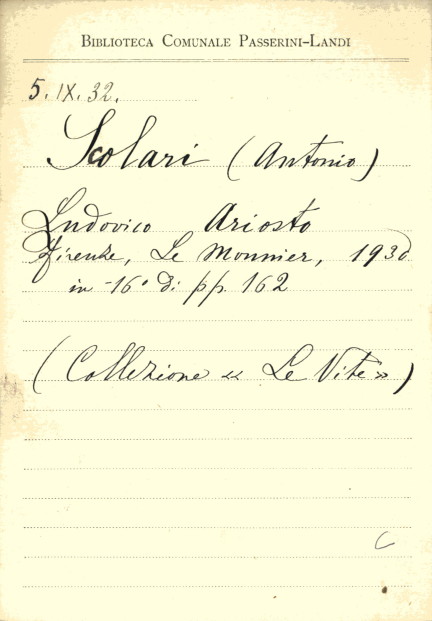 BIBLIOTECA COMUNALE PASSERINI-LANDI
5. IX. 32.
Scolari (Antonio)
Ludovico Ariosto
Firenze, Le Monnier, 1930
in -16° di pp. 162
(Collezione « Le Vite »)